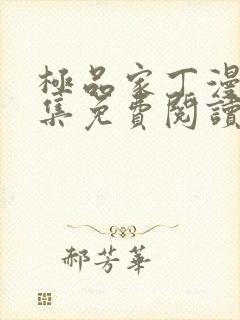 極品家丁漫
集免費閱讀
郝芳華